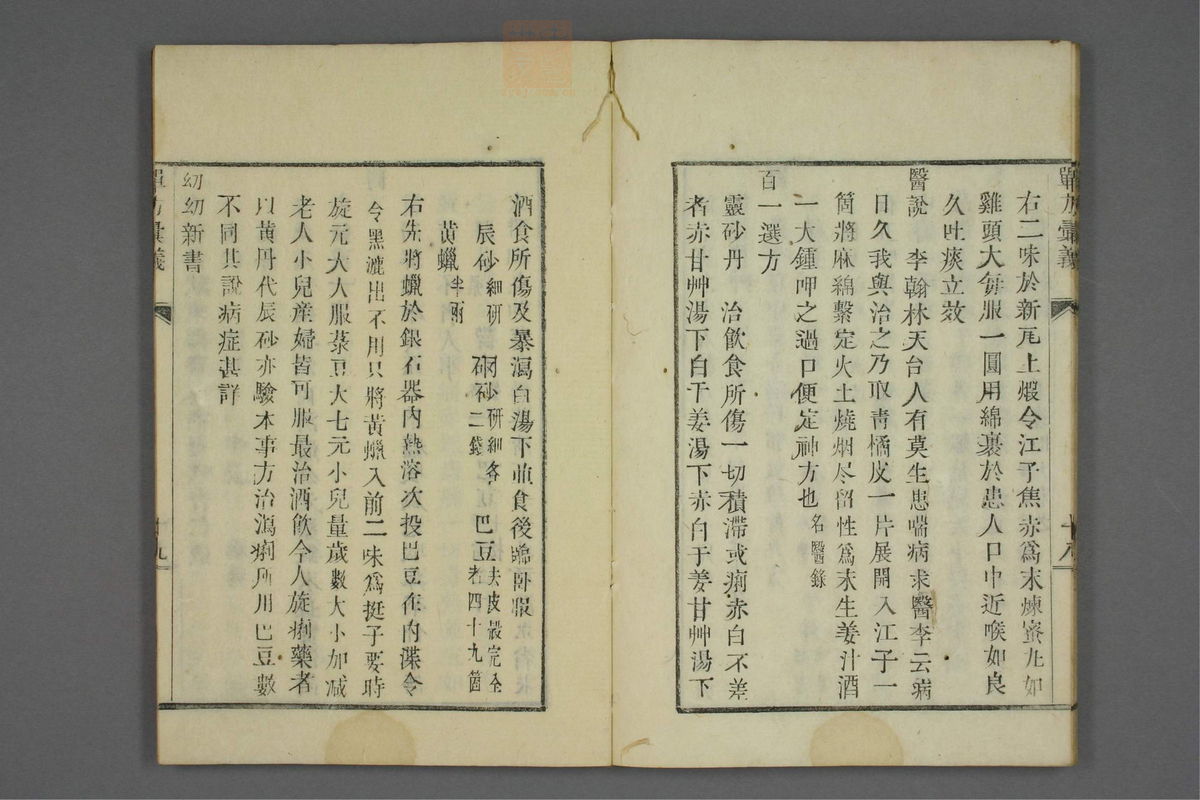 單方彙義
十八
右二味於新瓦上煅令江子焦赤爲末煉蜜丸如
雞頭大每服一圓用綿裹於患人口中近喉如良
久吐痰立效
醫說　李翰林天台人有莫生患喘病求醫李云病
日久我與治之乃取靑橘皮一片展開入江子一
箇將麻綿繫定火上燒烟尽留性爲末生姜汁酒
一大鍾呷之過口便定神方也名醫錄
百一選方
靈砂丹　治飮食所傷一切積滯或痢赤白不差
者赤甘艸湯下白干姜湯下赤白干姜甘艸湯下
酒食所傷及暴瀉白湯下並食後臨卧服
辰砂細研　硇砂研細各二錢　巴豆去皮最完全者四十九箇
黄蠟半兩
右先將蠟於銀石器內熱溶次投巴豆在內渫令
令黑漉出不用只將黄蠟入前二味爲挺子要時
旋元大人服菉豆大七元小兒量歲數大小加减
老人小兒産婦皆可服最治酒飮令人旋痢藥者
以黄丹代辰砂亦驗本事方治瀉痢所用巴豆數
不同其說病症甚詳
幼幼新書
單方彙義
十九